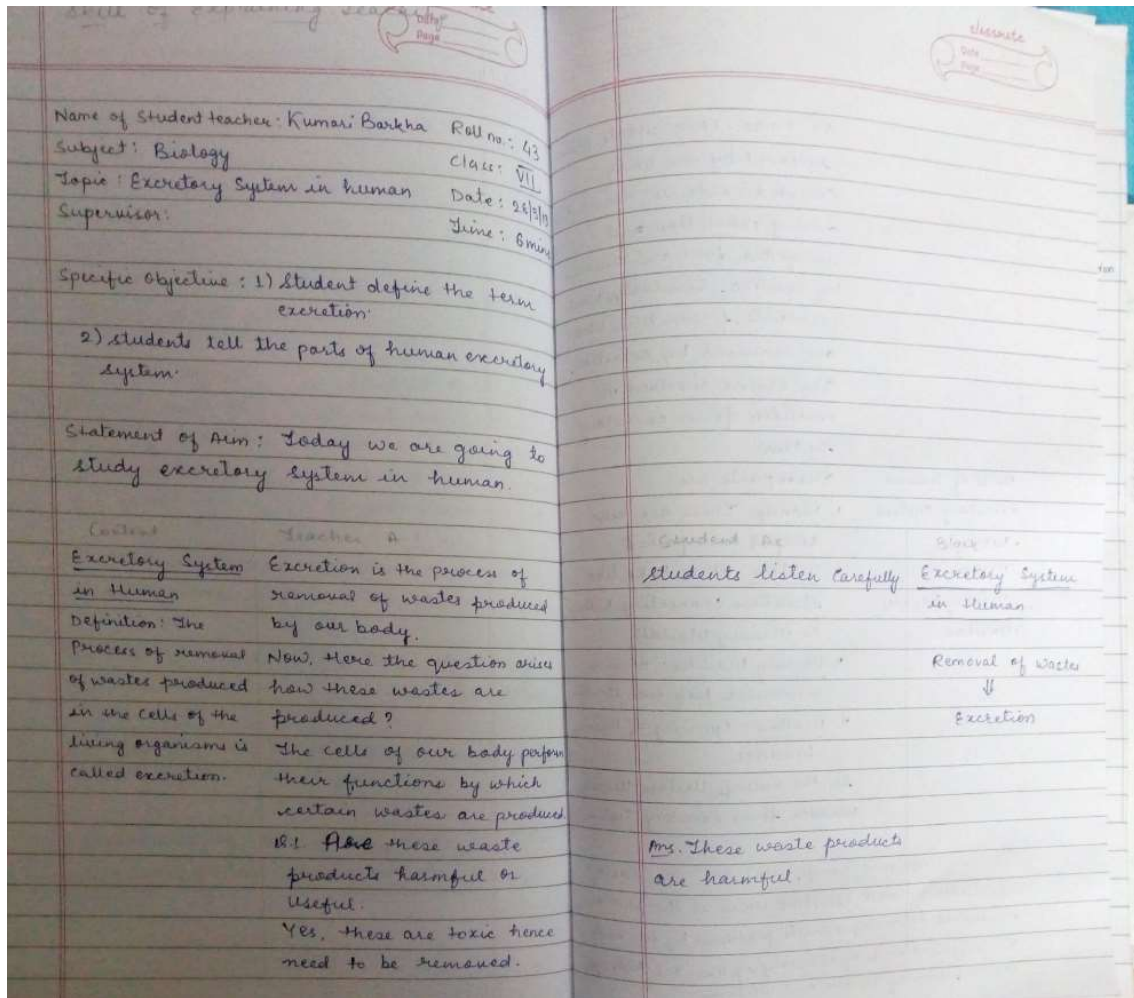 Skill of Explaining Teaching
Date
Page
classmate
Date
Page
Name of Student teacher: Kumari Barkha Roll no.: 43
Subject: Biology Class: VII
Topic: Excretory System in human Date:
Supervisor: Time: 6 mins
Specific Objective: 1) Student define the term
excretion.
2) students tell the parts of human excretory
system.
Statement of Aim: Today we are going to
study excretory system in human.
Content Teacher A
Excretory System
in Human
Definition: The
Process of removal
of wastes produced
in the cells of the
living organisms is
called excretion.
Excretion is the process of
removal of wastes produced
by our body.
Now, Here the question arises
how these wastes are
produced?
The cells of our body perform
their functions by which
certain wastes are produced
Q.1 Are these waste
products harmful or
useful.
Yes, these are toxic hence
need to be removed.
Student Ac
students listen carefully
Ans. These waste products
are harmful.
Excretory System
in Human
Removal of Wastes
⇓
Excretion